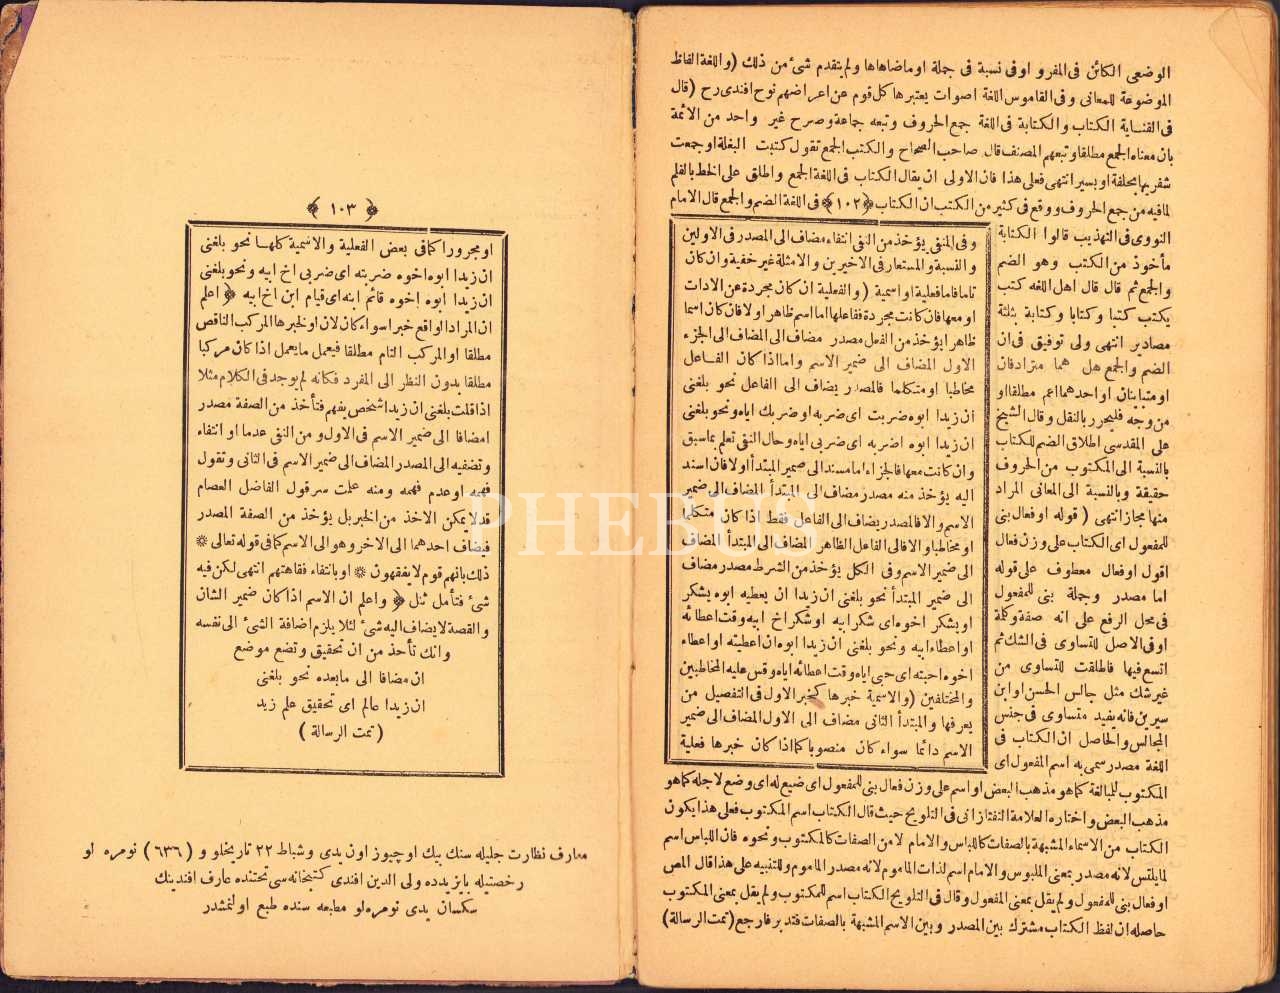 الوضعى الكائن فى المفرد او فى نسبة فى جملة او ماضاهاها ولم يتقدم شئ من ذلك (واللغة الفاظ
الموضوعة للمعانى وفى القاموس اللغة اصوات يعتبرها كل قوم عن اعراضهم نوح افندى رح (قال
فى العناية الكتاب والكتابة فى اللغة جمع الحروف وتبعه جماعة وصرح غير واحد من الائمة
بان معناه الجمع مطلقا وتبعهم المصنف قال صاحب الصحاح والكتب الجمع تقول كتبت البغلة اوجمعت
شفريها بحلقة او بسير انتهى فعلى هذا فان الاولى ان يقال الكتاب فى اللغة الجمع واطلق على الخط بالقلم
لما فيه من جمع الحروف ووقع فى كثير من الكتب ان الكتاب ﴿١٠٢﴾ فى اللغة الضم والجمع قال الامام
النووى فى التهذيب قالوا الكتابة
مأخوذ من الكتب وهو الضم
والجمع ثم قال قال اهل اللغه كتب
يكتب كتبا وكتابا وكتابة بثلثة
مصادير انتهى ولى توفيق فى ان
الضم والجمع هل هما مترادفان
او متباينان او احدهما اعم مطلقا او
من وجه فليحرر بالنقل وقال الشيخ
على المقدسى اطلاق الضم للكتاب
بالنسبة الى المكتوب من الحروف
حقيقة وبالنسبة الى المعانى المراد
منها مجاز انتهى ( قوله او فعال بنى
للمفعول اى الكتاب على وزن فعال
اقول او فعال معطوف على قوله
اما مصدر وجملة بنى للمفعول
فى محل الرفع على انه صفة وكلمة
او فى الاصل للتساوى فى الشك ثم
اتسع فيها فاطلقت للتساوى من
غير شك مثل جالس الحسن او ابن
سيرين فانه يفيد متساوى فى جنس
المجالس والحاصل ان الكتاب فى
اللغة مصدر سمى به اسم المفعول اى
المكتوب للمبالغة كما هو مذهب البعض او اسم على وزن فعال بنى للمفعول اى ضيع له اى وضع لاجله كما هو
مذهب البعض واختاره العلامة التفتازانى فى التلويح حيث قال الكتاب اسم المكتوب فعلى هذا يكون
الكتاب من الاسماء المشبهة بالصفات كاللباس والامام لا من الصفات كالمكتوب ونحوه فان اللباس اسم
لما يلبس لانه مصدر بمعنى الملبوس والامام اسم لذات الماموم لانه مصدر الماموم وللتنبيه على هذا قال المص
او فعال بنى للمفعول ولم يقل بمعنى المفعول وقال فى التلويح الكتاب اسم للمكتوب ولم يقل بمعنى المكتوب
حاصله ان لفظ الكتاب مشترك بين المصدر وبين الاسم المشبهة بالصفات فتدبر فارجع (تمت الرسالة)
وفى المنفى يؤخذ من النفى انتفاء مضاف الى المصدر فى الاولين
والنسبة والمستعار فى الاخيرين والامثلة غير خفية وان كان
تاما فاما فعلية او اسمية ( والفعلية ان كان مجردة عن الادات
او معها فان كانت مجردة ففاعلها اما اسم ظاهر او لا فان كان اسما
ظاهرا يؤخذ من الفعل مصدر مضاف الى المضاف الى الجزء
الاول المضاف الى ضمير الاسم واما اذا كان الفاعل
مخاطبا او متكلما فالمصدر يضاف الى الفاعل نحو بلغنى
ان زيدا ابوه ضربت اى ضربه او ضربك اياه ونحو بلغنى
ان زيدا ابوه اضربه اى ضربى اياه وحال النفى تعلم بما سبق
وان كانت معها فالجزاء اما مسند الى ضمير المبتدأ او لا فان اسند
اليه يؤخذ منه مصدر مضاف الى المبتدأ المضاف الى ضمير
الاسم والا فالمصدر يضاف الى الفاعل فقط اذا كان متكلما
او مخاطبا والا فالى الفاعل الظاهر المضاف الى المبتدأ المضاف
الى ضمير الاسم وفى الكل يؤخذ من الشرط مصدر مضاف
الى ضمير المبتدأ نحو بلغنى ان زيدا ان يعطيه ابوه يشكر
او يشكر اخوه اى شكر ابيه او شكر اخ ابيه وقت اعطائه
او اعطاء ابيه ونحو بلغنى ان زيدا ابوه ان اعطيته او اعطاء
اخوه احبته اى حبى اياه وقت اعطائه اياه وقس عليه المخاطبين
والمختلفين (والاسمية خبرها كخبر الاول فى التفصيل من
يعرفها والمبتدأ الثانى مضاف الى الاول المضاف الى ضمير
الاسم دائما سواء كان منصوبا كما اذا كان خبرها فعلية
﴿ ١٠٣ ﴾
او مجرورا كما فى بعض الفعلية والاسمية كلها نحو بلغنى
ان زيدا ابوه اخوه ضربته اى ضربى اخ ابيه ونحو بلغنى
ان زيدا ابوه اخوه قائم ابنه اى قيام ابن اخ ابيه ﴿ اعلم
ان المراد الواقع خبرا سواء كان لان او لخبرها المركب الناقص
مطلقا او المركب التام مطلقا فيعمل ما يعمل اذا كان مركبا
مطلقا بدون النظر الى المفرد فكانه لم يوجد فى الكلام مثلا
اذا قلت بلغنى ان زيدا شخص يفهم فتأخذ من الصفة مصدر
امضافا الى ضمير الاسم فى الاول ومن النفى عدما او انتفاء
وتضفيه الى المصدر المضاف الى ضمير الاسم فى الثانى وتقول
فهمه او عدم فهمه ومنه علمت سر قول الفاضل العصام
قد لا يمكن الاخذ من الخبر بل يؤخذ من الصفة المصدر
فيضاف احدهما الى الاخر وهو الى الاسم كما فى قوله تعالى *
ذلك بانهم قوم لا يفقهون * او بانتفاء فقاهتهم انتهى لكن فيه
شئ فتأمل تنل ﴿ واعلم ان الاسم اذا كان ضمير الشان
والقصة لا يضاف اليه شئ لئلا يلزم اضافة الشئ الى نفسه
وانك تأخذ من ان تحقيق وتضع موضع
ان مضافا الى ما بعده نحو بلغنى
ان زيدا عالم اى تحقيق علم زيد
( تمت الرسالة )
معارف نظارت جليله سنك بيك اوچيوز اون يدى وشباط ٢٢ تاريخلو و (٦٣٦) نومره لو
رخصتيله بايزيدده ولى الدين افندى كتبخانه سى تحتنده عارف افندينك
سكسان يدى نومره لو مطبعه سنده طبع اولنمشدر
PHEBUS